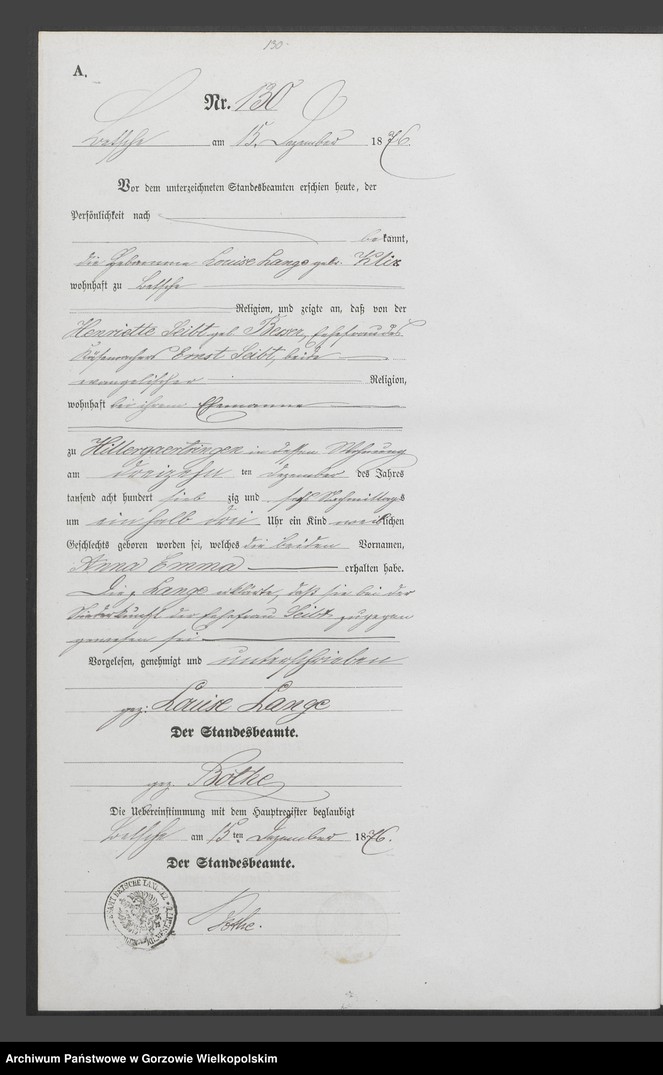 130.
A.
Nr. 130
Betsche am 15. Dezember 1876.
Vor dem unterzeichneten Standesbeamten erschien heute, der
Persönlichkeit nach
bekannt,
die Hebamme Louise Lange geb. Klix
wohnhaft zu Betsche
Religion, und zeigte an, daß von der
Henriette Seibt geb. Ehefrau des
Ernst Seibt, beide
evangelischer Religion,
wohnhaft bei ihrem Ehemanne
zu Hillergaertringen in dessen Wohnung
am dreizehnten Dezember des Jahres
tausend acht hundert siebzig und sechs Nachmittags
um ein halb drei Uhr ein Kind weiblichen
Geschlechts geboren worden sei, welches die beiden Vornamen,
Anna Emma erhalten habe.
Die p. Lange erklärte, daß sie bei der
Niederkunft der Ehefrau Seibt zugegen
gewesen sei
Vorgelesen, genehmigt und unterschrieben
gez: Louise Lange
Der Standesbeamte.
gez Bothe
Die Uebereinstimmung mit dem Hauptregister beglaubigt
Betsche am 15ten Dezember 1876.
Der Standesbeamte.
Bothe.
Archiwum Państwowe w Gorzowie Wielkopolskim